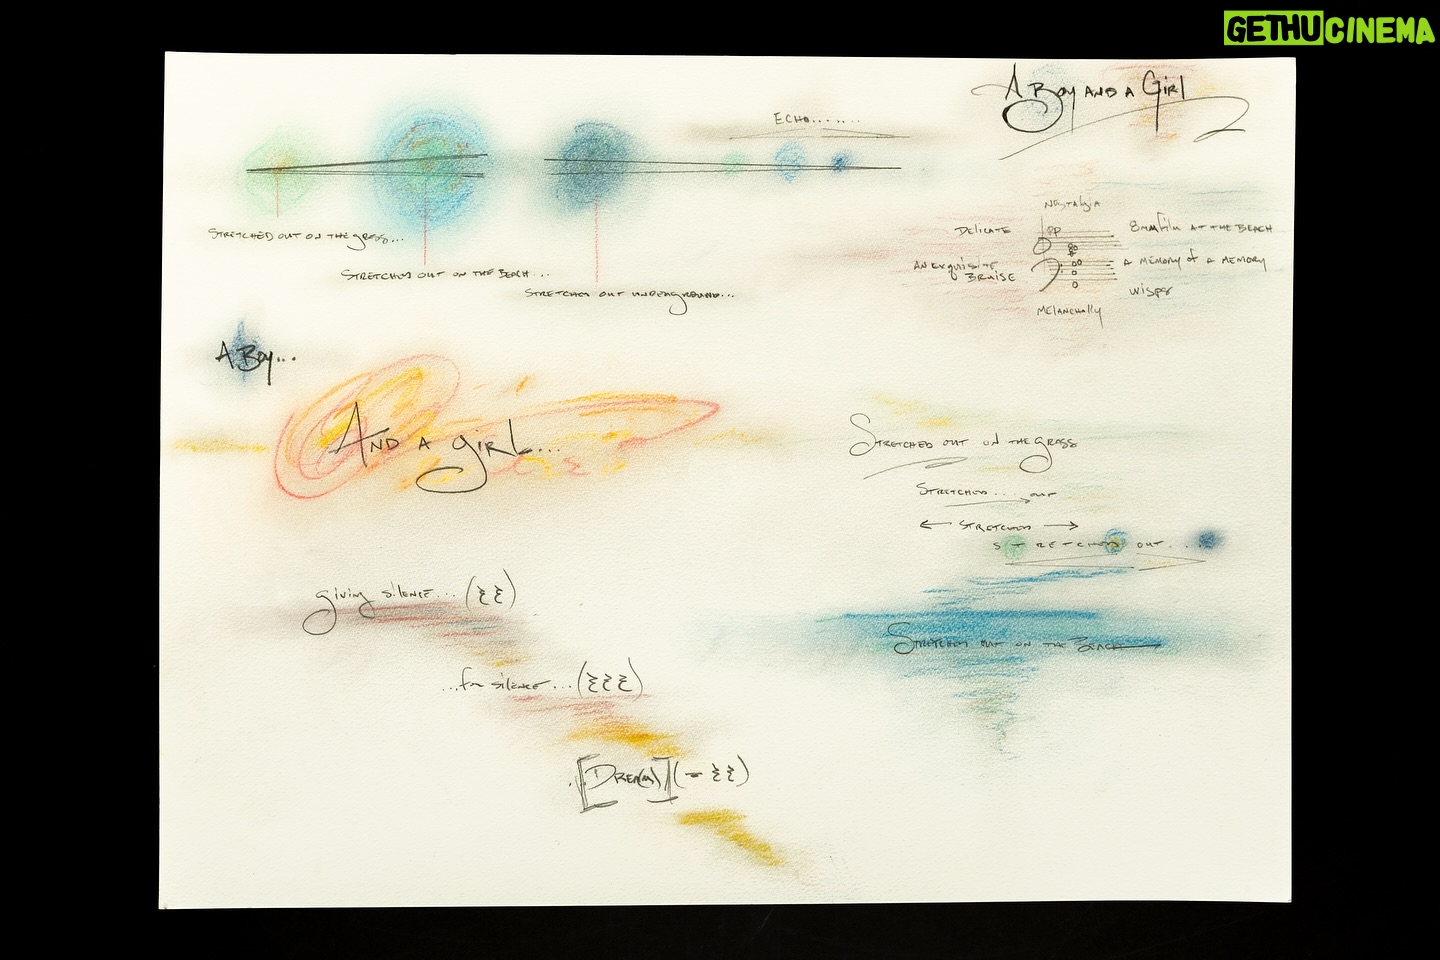 GETHUCINEMA
A Boy and a Girl
ECHO.......
STRETCHED OUT ON THE grass...
STRETCHED OUT ON THE BEACH...
STRETCHED OUT UNDERGROUND...
NOSTALGIA
DELICATE
pp
8mm film AT THE BEACH
AN EXQUISITE BRUISE
A MEMORY of A MEMORY
WISPS
MELANCHOLLY
A Boy...
AND A girL...
STRETCHED OUT ON THE grass
STRETCHED... OUT
← STRETCHED →
S T RETCHED OUT...
giving silence...
STRETCHED OUT ON THE BEACH
...for silence...
[DREA(M)]